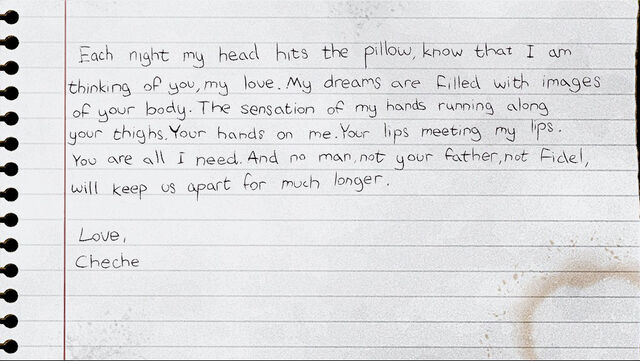 Each night my head hits the pillow, know that I am
thinking of you, my love. My dreams are filled with images
of your body. The sensation of my hands running along
your thighs. Your hands on me. Your lips meeting my lips.
You are all I need. And no man, not your father, not Fidel,
will keep us apart for much longer.
Love,
Cheche